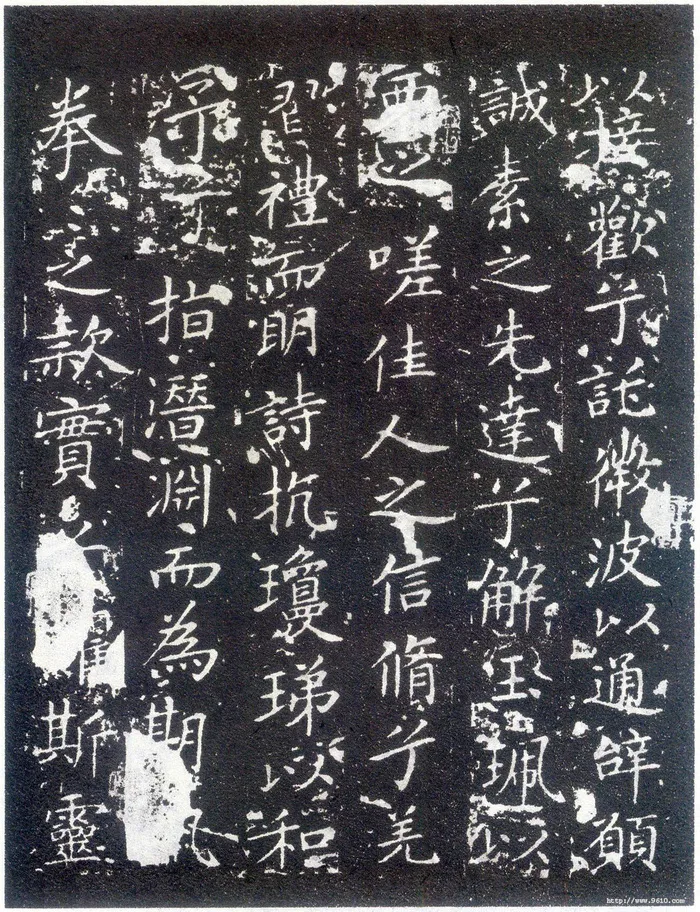 以接歡兮託微波以通辝願
誠素之先達兮解玉珮以
要之嗟佳人之信脩兮羌
習禮而眀詩抗瓊珶以和
予兮指潛淵而為期
眷之款實兮斯靈